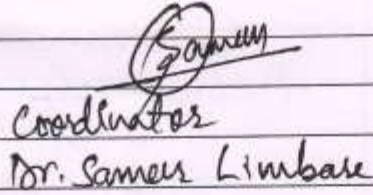 Sameer
Coordinator
Dr. Sameer Limbare